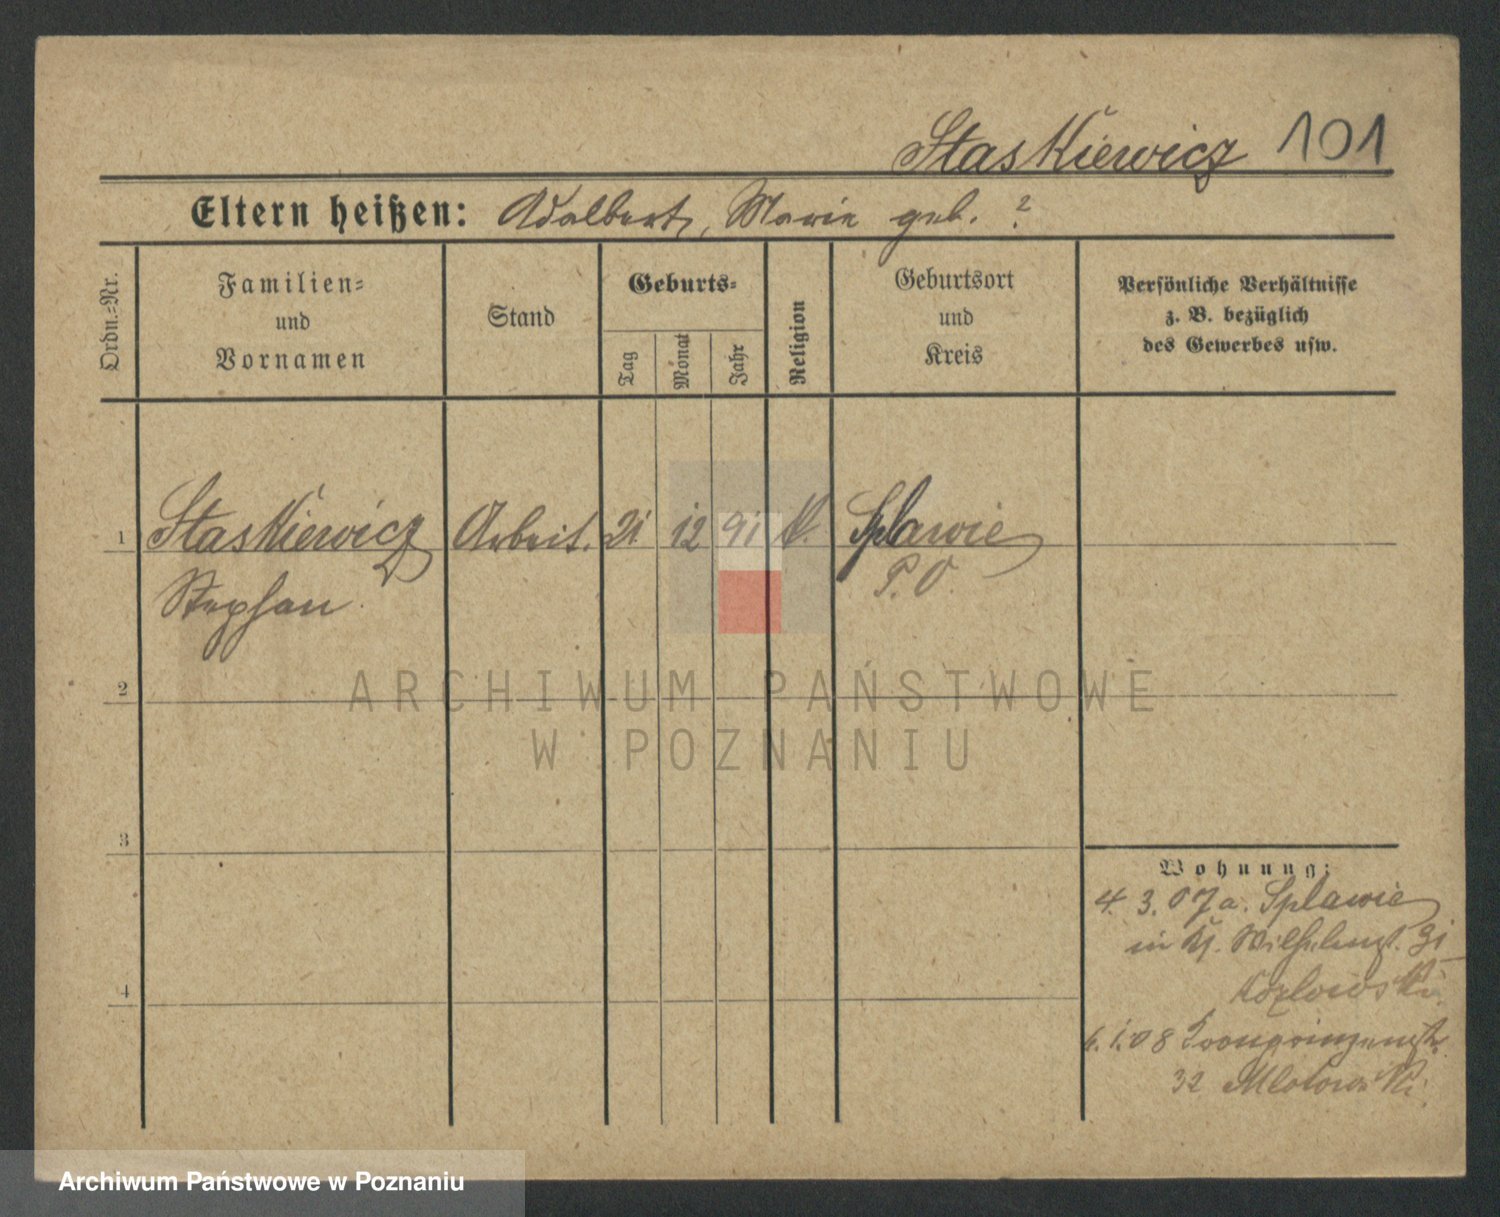 Staskiewicz 101
Eltern heißen: Adalbert, Marie geb. ?
Ordn.-Nr.
Familien-
und
Vornamen
Stand
Geburts-
Tag
Monat
Jahr
Religion
Geburtsort
und
Kreis
Persönliche Verhältnisse
z. B. bezüglich
des Gewerbes usw.
1 Staskiewicz Arbeit. 21 12 91 k. Splawie
Stephan P. O.
2
3
4
Wohnung:
4. 3. 07 a. Splawie
in Kl. Wilhelmst. 31
Kozlowski
6. 1. 08 Kronprinzenstr.
32 Mlotowski
ARCHIWUM PAŃSTWOWE
W POZNANIU
Archiwum Państwowe w Poznaniu